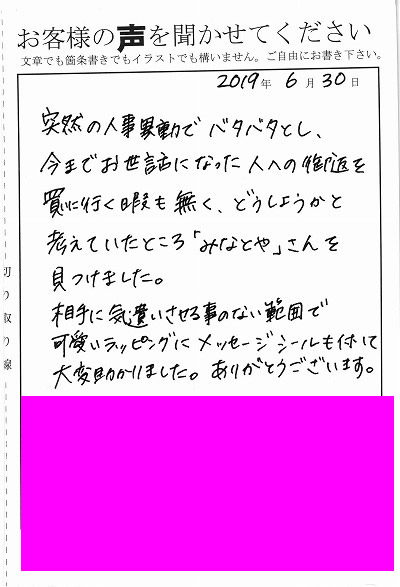 お客様の声を聞かせてください
文章でも箇条書きでもイラストでも構いません。ご自由にお書き下さい。
2019年 6月 30日
突然の人事異動で バタバタとし、
今までお世話になった人への御返を
買いに行く暇も無く、どうしようかと
考えていたところ「みなとや」さんを
見つけました。
相手に気遣いさせる事のない範囲で
可愛いラッピングに メッセージシールも付いて
大変助かりました。ありがとうございます。
切り取り線